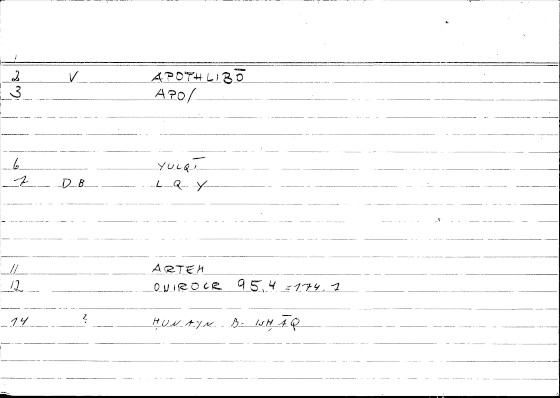 1
2 V APOTHLIBŌ
3 APO/
6 YULQĪ
7 DB LQY
11 ARTEM
12 ONIROCR 95.4 = 174.1
14 ? ḤUNAYN B. ISḤĀQ